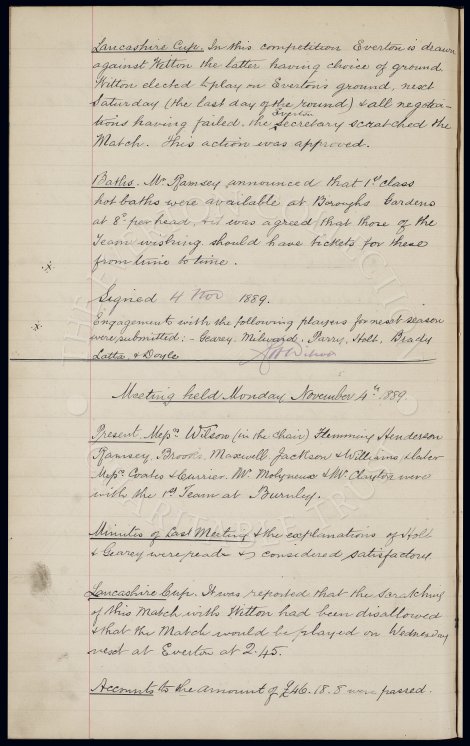 Lancashire Cup. In this competition Everton is drawn
against Witton the latter having choice of ground.
Witton elected to play on Everton's ground, next
Saturday (the last day of the round) & all negotia-
tions having failed, the Everton Secretary scratched the
Match. This action was approved.
Baths. Mr. Ramsey announced that 1st class
hot baths were available at Boroughs Gardens
at 8d per head, & it was agreed that those of the
Team wishing should have tickets for these
from time to time.
Signed 4 Nov 1889.
Engagements with the following players for next season
were submitted:- Geary, Milward, Parry, Holt, Brady
Latta, & Doyle
Wilson
Meeting held Monday November 4th 1889.
Present. Messrs Wilson (in the chair) Flemming Henderson
Ramsey, Brooks, Maxwell, Jackson & Williams & later
Messrs Coates & Currier. Mr. Molyneux & Mr Clayton were
with the 1st Team at Burnley.
Minutes of Last Meeting & the explanations of Holt
& Geary were read & considered satisfactory.
Lancashire Cup. It was reported that the scratching
of this Match with Witton had been disallowed
& that the Match would be played on Wednesday
next at Everton at 2.45.
Accounts to the amount of £46.18.8 were passed.